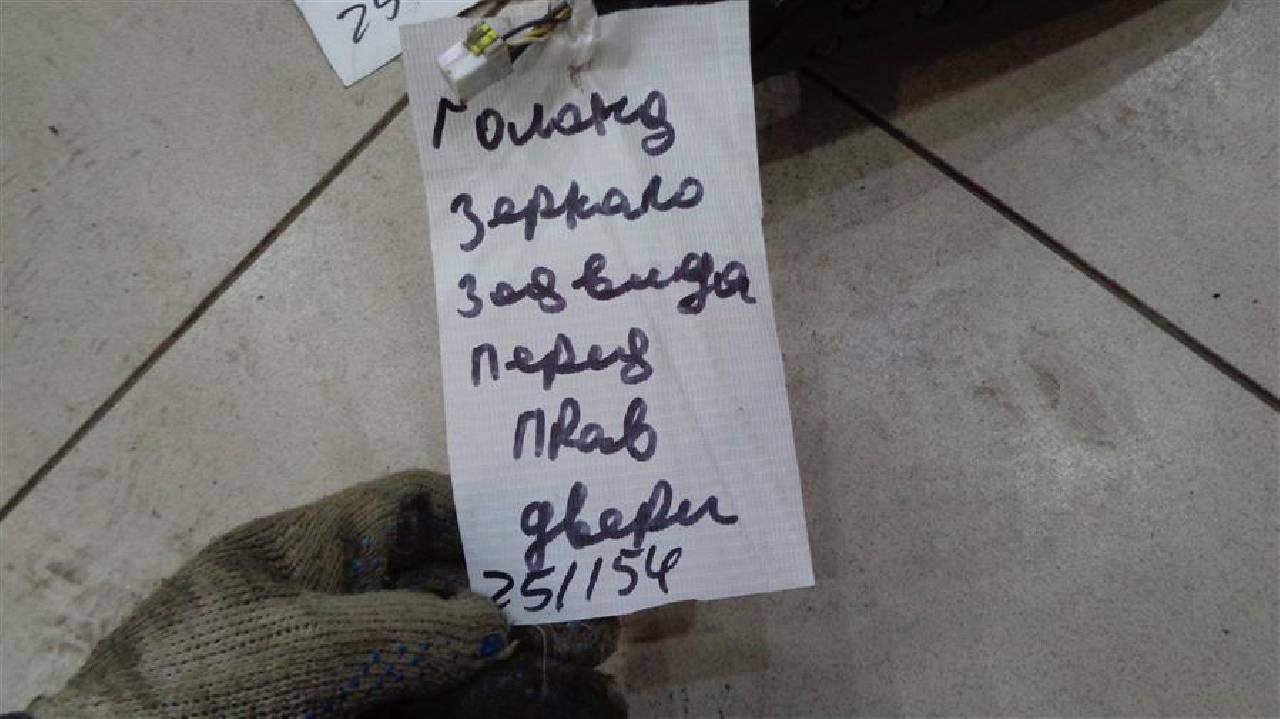 25
Голанд
Зеркало
Зад вида
перед
прав
двери
251154